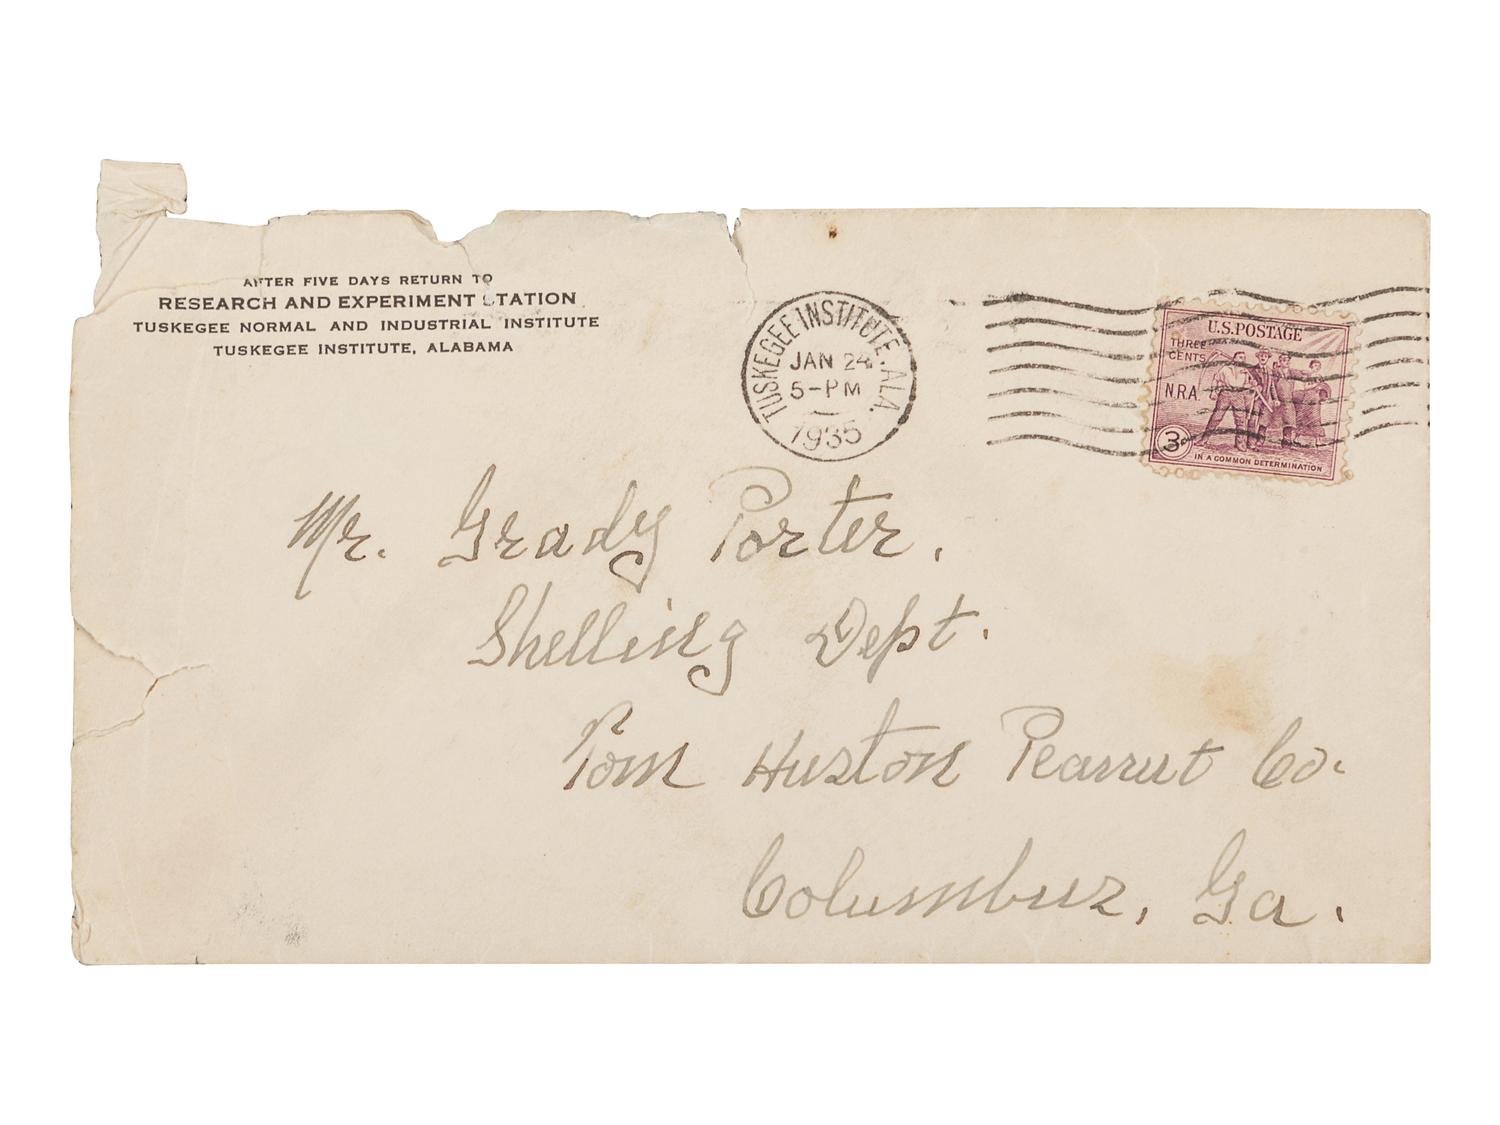 AFTER FIVE DAYS RETURN TO
RESEARCH AND EXPERIMENT STATION
TUSKEGEE NORMAL AND INDUSTRIAL INSTITUTE
TUSKEGEE INSTITUTE, ALABAMA
TUSKEGEE INSTITUTE, ALA.
JAN 24
5-PM
1935
U.S. POSTAGE
THREE
CENTS
N.R.A.
3¢
IN A COMMON DETERMINATION
Mr. Grady Porter,
Shelling Dept.
Tom Huston Peanut Co.
Columbus, Ga.